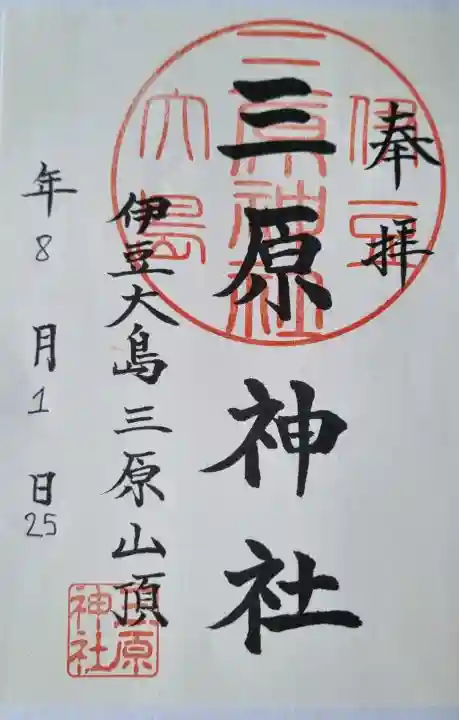 奉拝
伊豆
三原神社
大島
三原神社
伊豆大島三原山頂
三原
神社
年8月1日25